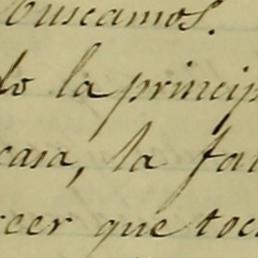 buscamos.
do la princip
casa, la fa
reer que toc